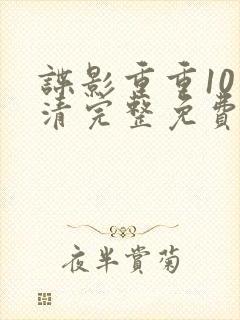 諜影重重10
清完整免費
夜半賞菊